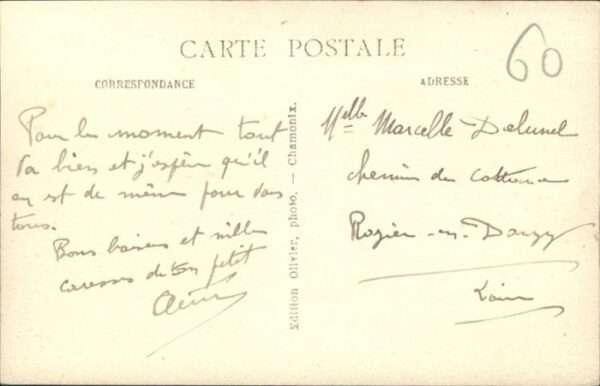 CARTE POSTALE
60
CORRESPONDANCE
Pour le moment tout
va bien et j'espère qu'il
en est de même pour vous
tous.
Bons baisers et milles
caresses de ton petit
Edition Olivier, photo. — Chamonix.
ADRESSE
Melle Marcelle
chemin du
Rozier-en-Donzy
Loire